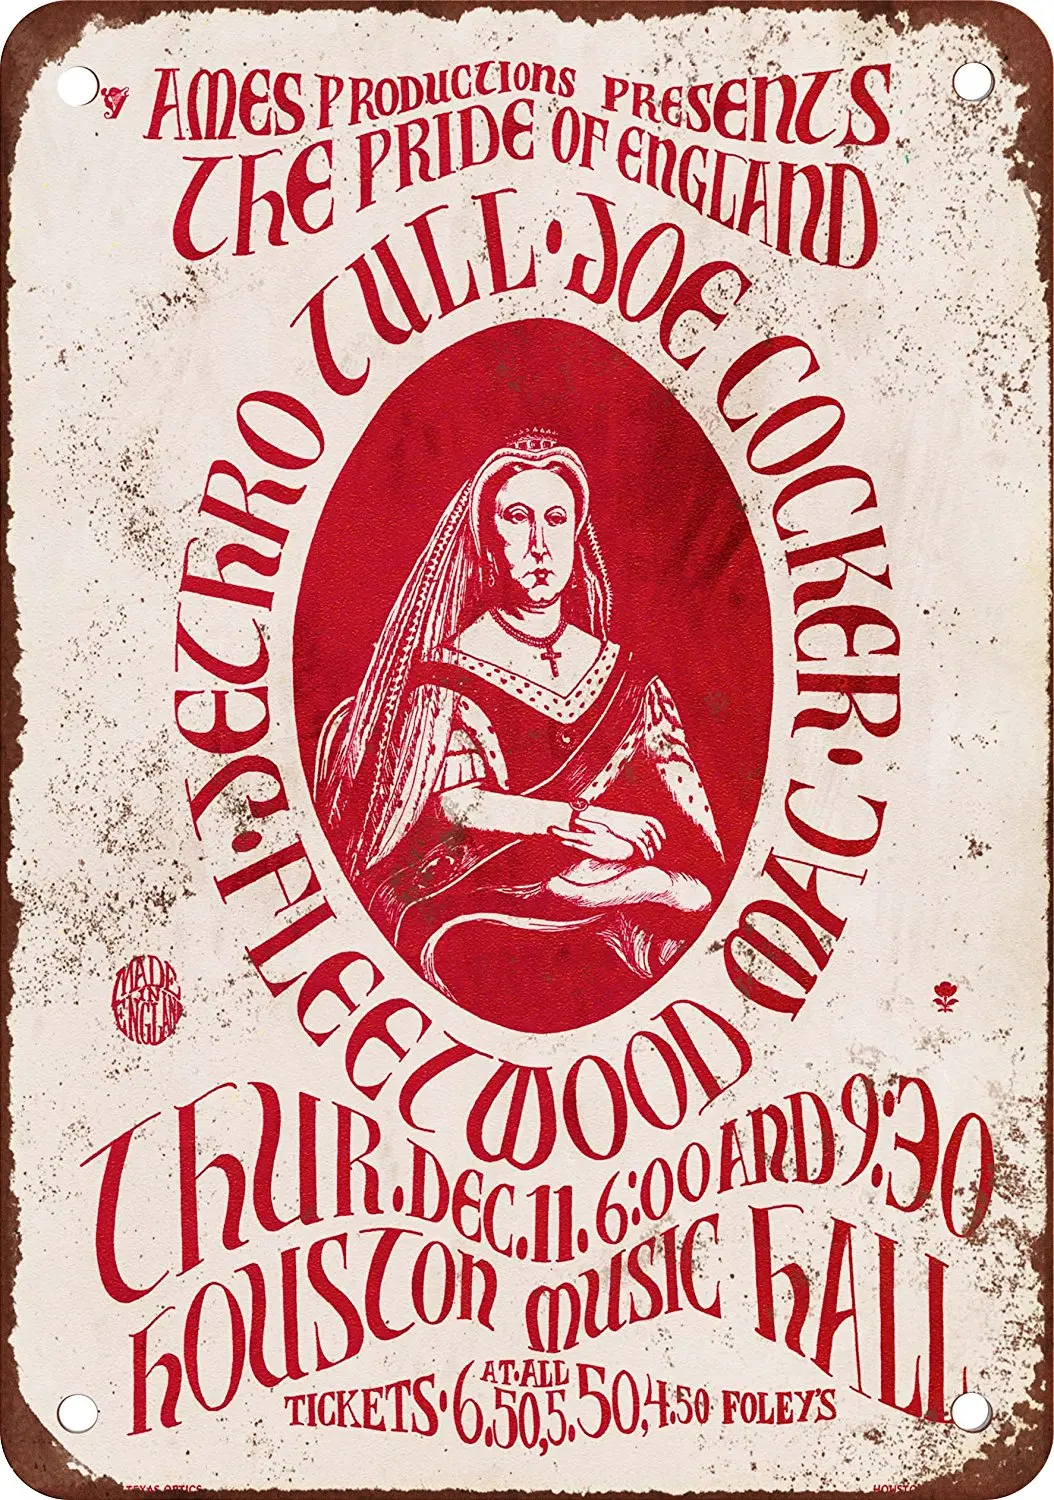 AMES PRODUCTIONS PRESENTS
THE PRIDE OF ENGLAND
JETHRO TULL · JOE COCKER · FLEETWOOD MAC ·
MADE
IN
ENGLAND
THUR. DEC. 11. 6:00 AND 9:30
HOUSTON MUSIC HALL
TICKETS · 6.50, 5.50, 4.50 AT ALL FOLEY'S
TEXAS OPTICS